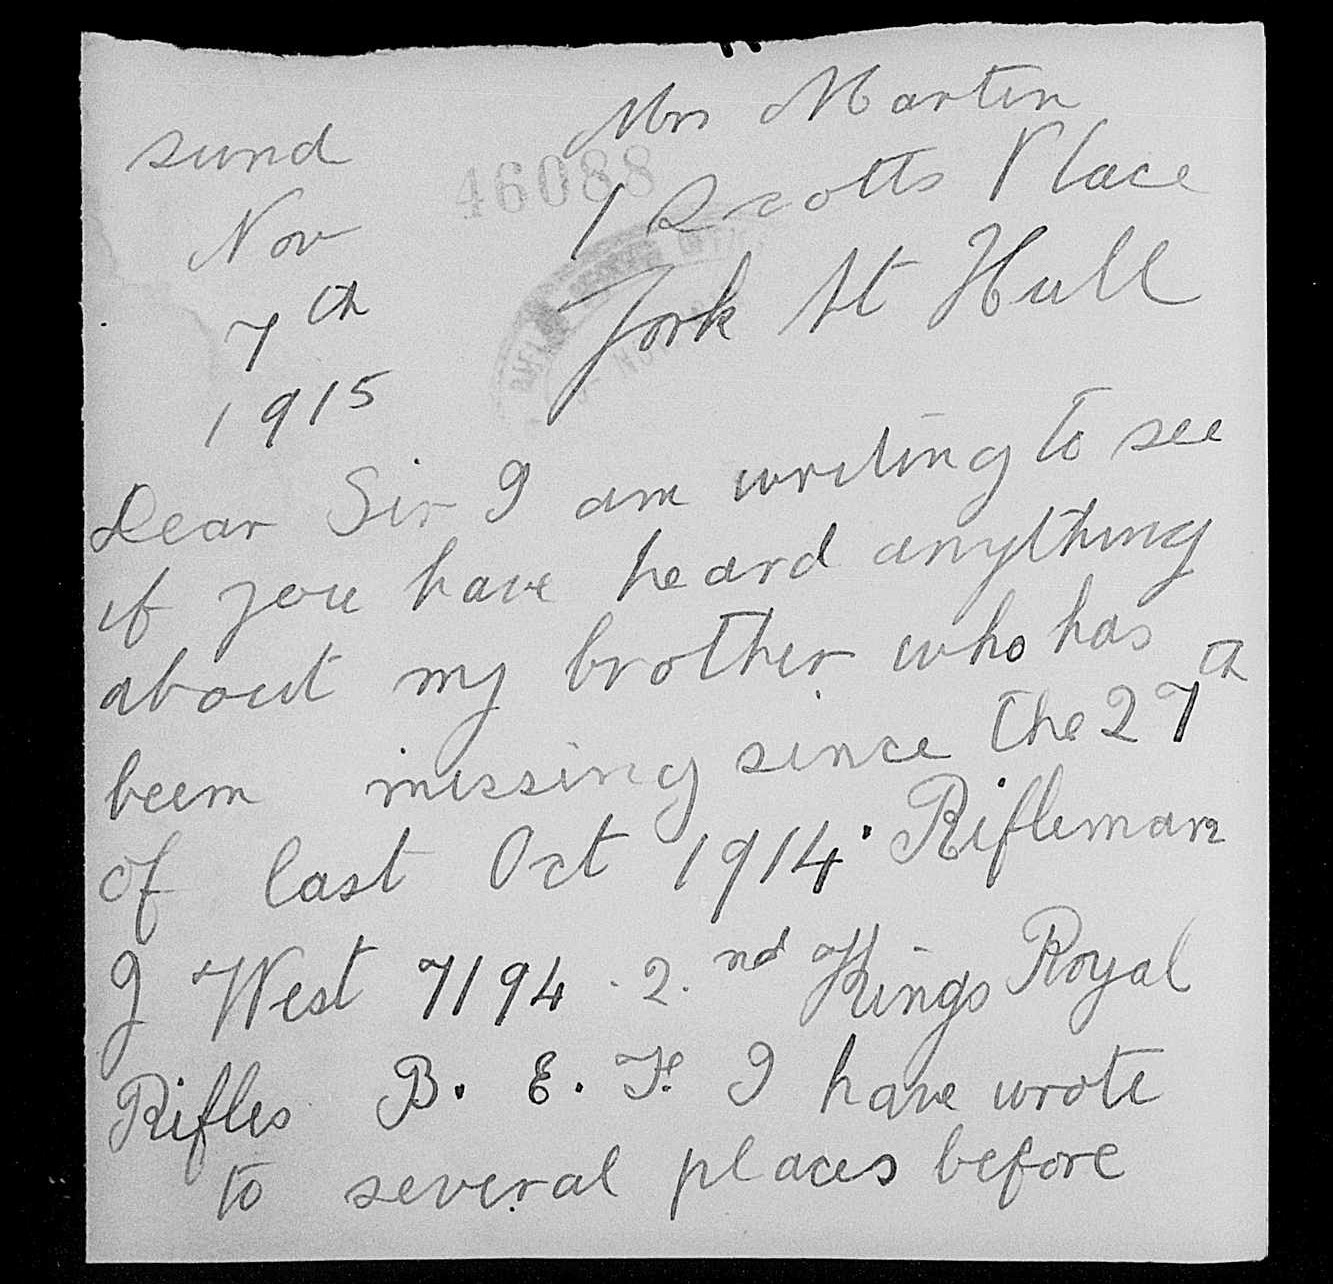 Mrs Martin
sund
46088
1 Scotts Place
Nov
York St Hull
7th
1915
Dear Sir I am writing to see
if you have heard anything
about my brother who has
beem missing since the 27th
of last Oct 1914. Rifleman
J West 7194. 2.nd Kings Royal
Rifles B. E. F. I have wrote
to several places before